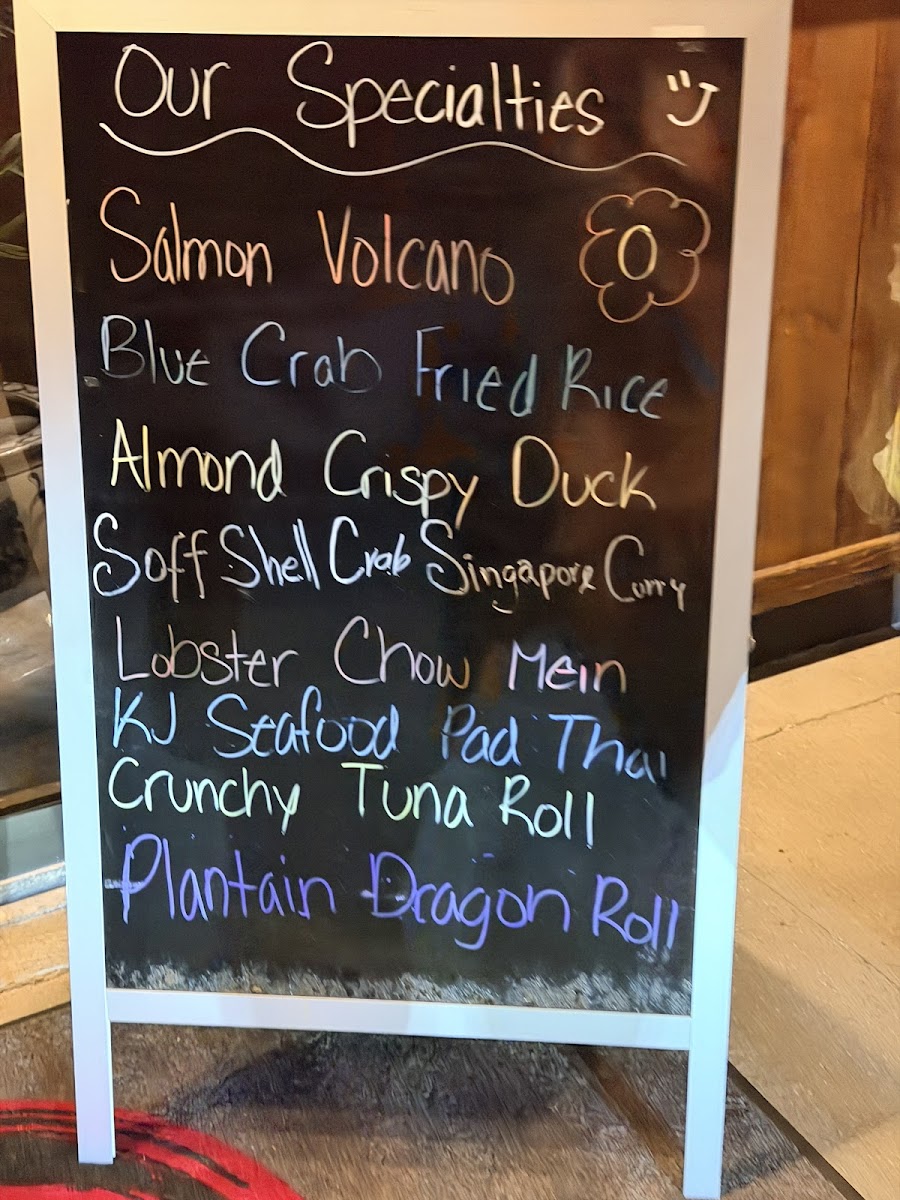 Our Specialties
Salmon Volcano
Blue Crab Fried Rice
Almond Crispy Duck
Soff Shell Crab Singapore Curry
Lobster Chow Mein
KJ Seafood Pad Thai
Crunchy Tuna Roll
Plantain Dragon Roll